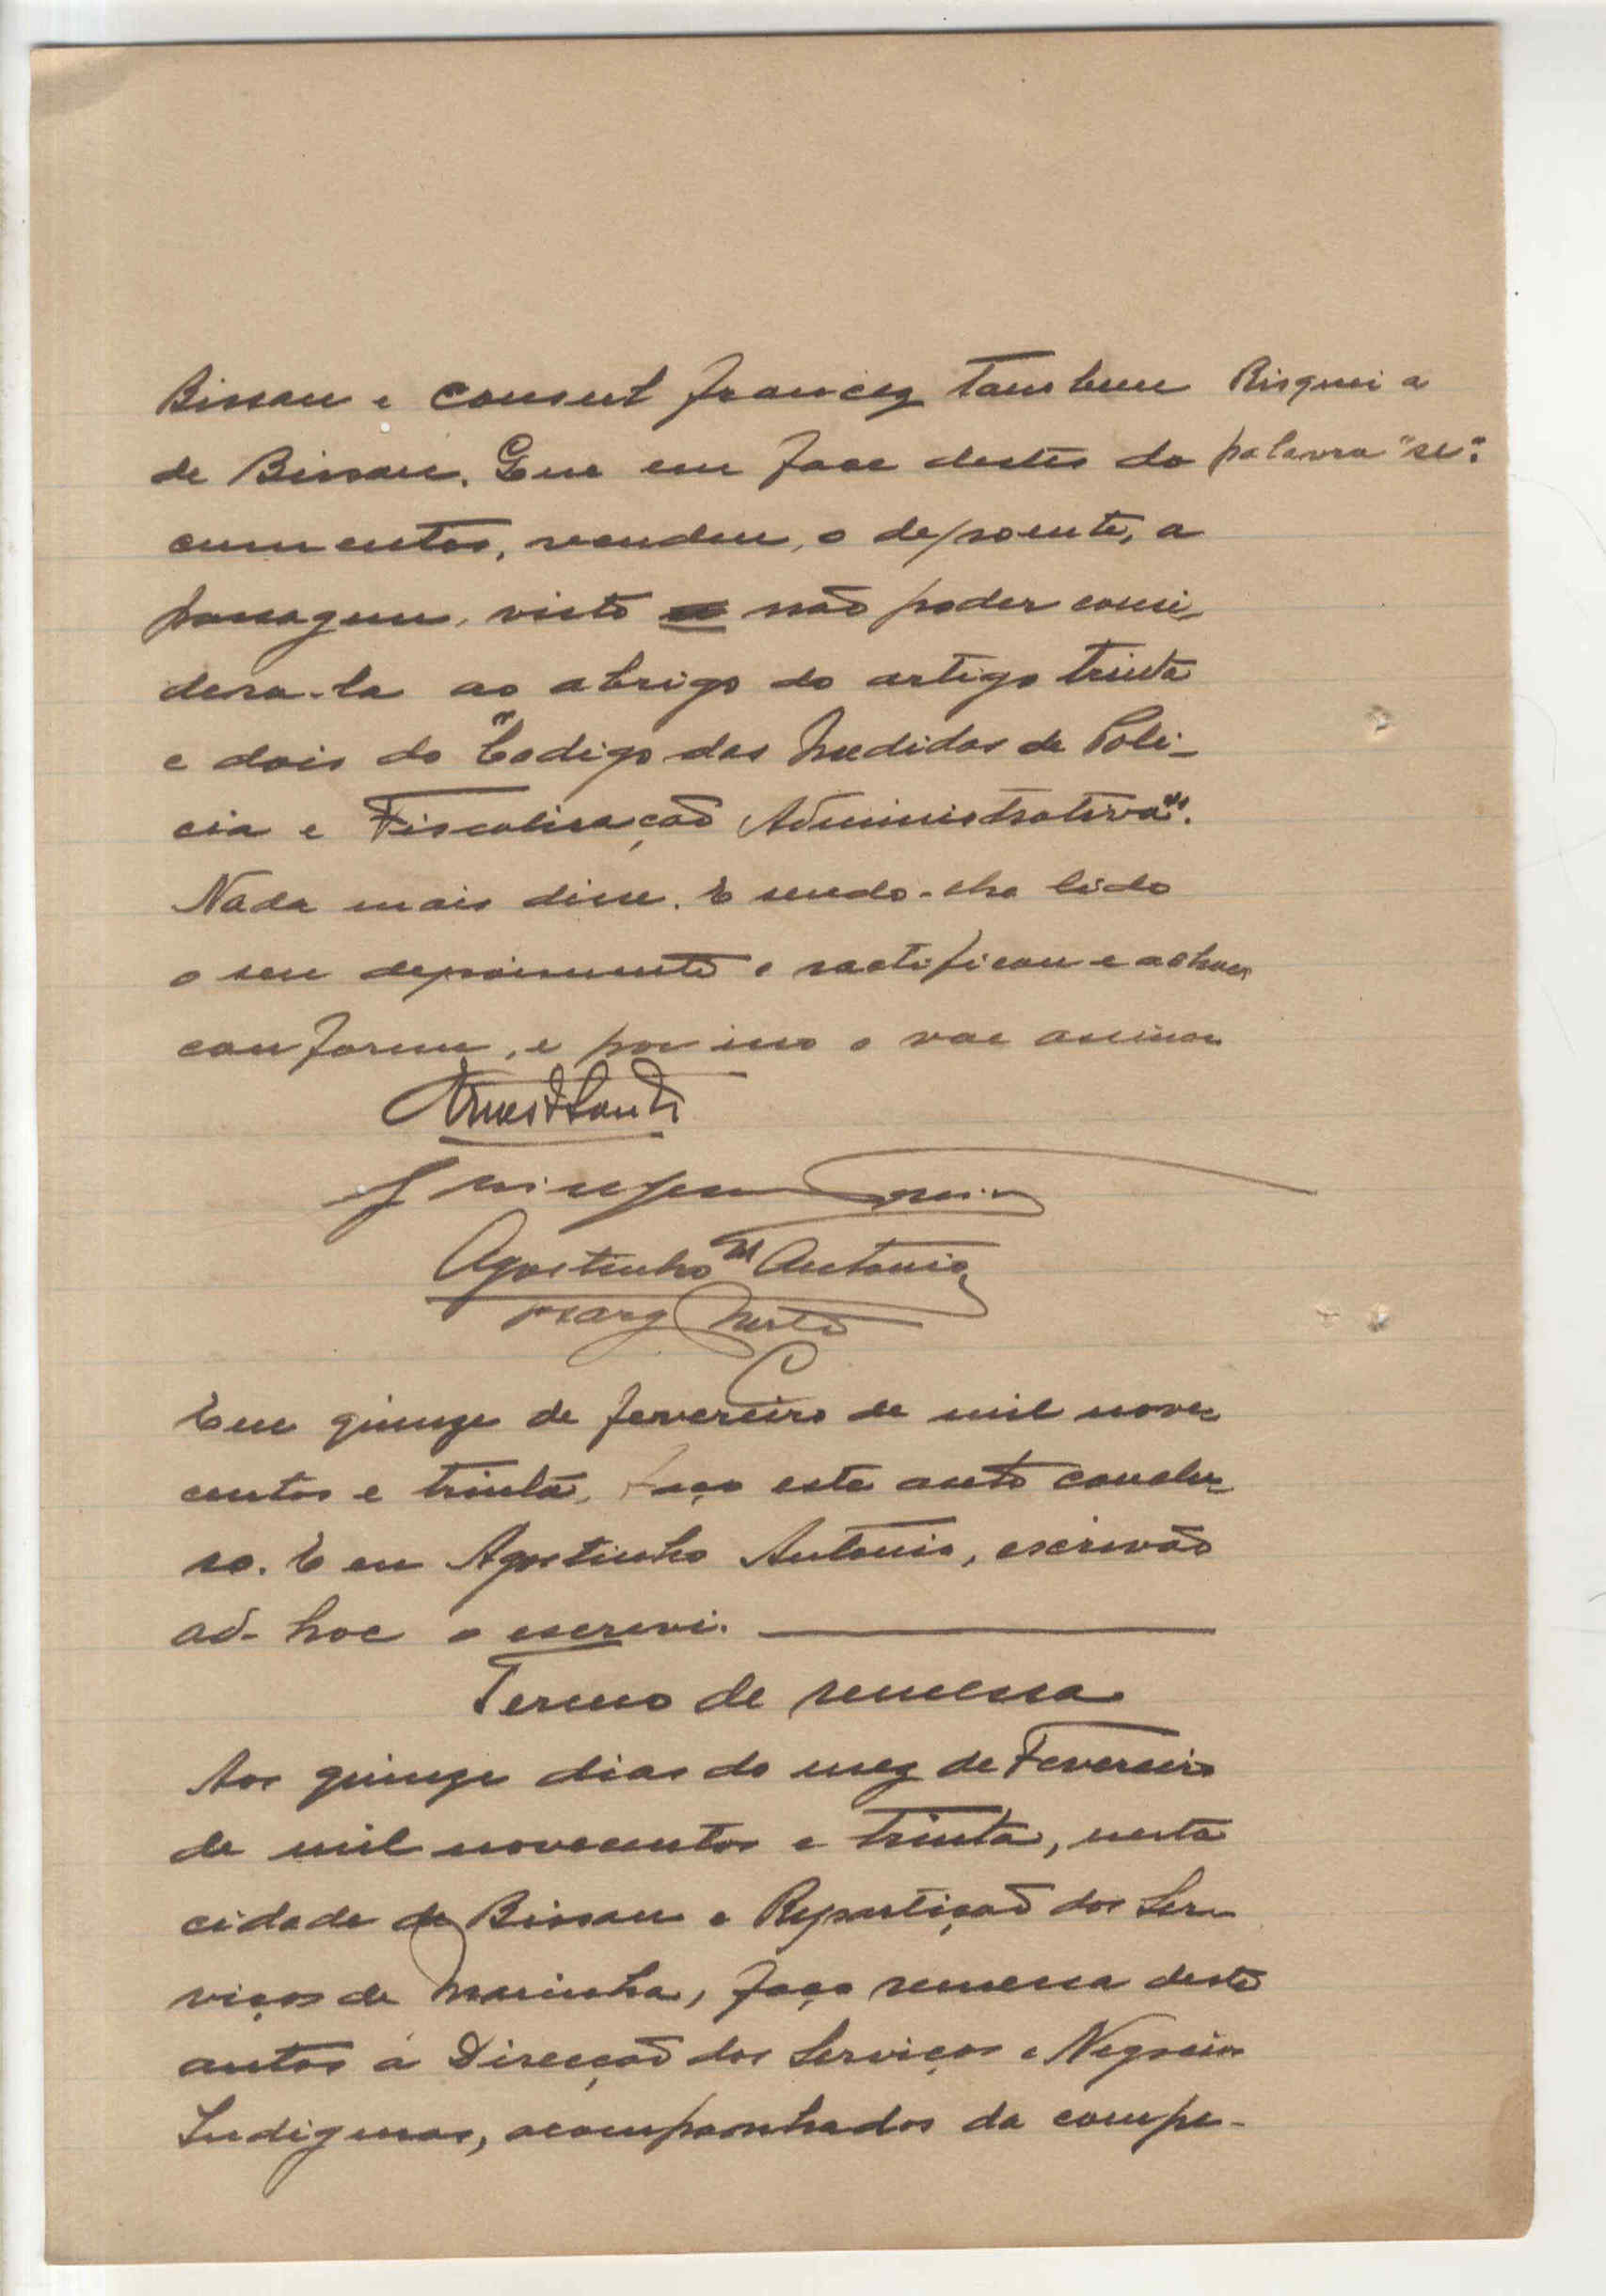 Bissau e consul francez tambem Risquei a
de Bissau. Que em face destes do palavra "se".
cumentos, vendeu, o depoente, a
passagem, visto se não poder consi-
dera-la ao abrigo do artigo trinta
e dois do "Codigo das Medidas de Poli-
cia e Fiscalisação Administrativa".
Nada mais disse. E sendo-lhe lido
o seu depoimento o ractificou e achou
conforme, e por isso o vae assinar
Agostinho Antonio
Em quinze de fevereiro de mil nove-
centos e trinta, faço este auto conclu-
so. E eu Agostinho Antonio, escrivão
ad-hoc o escrevi.
Termo de remessa
Aos quinze dias do mez de Fevereiro
de mil novecentos e trinta, nesta
cidade de Bissau e Repartição dos Ser-
viços de Marinha, faço remessa deste
autos á Direcção dos Serviços e Negocios
Indigenas, acompanhados da compe-